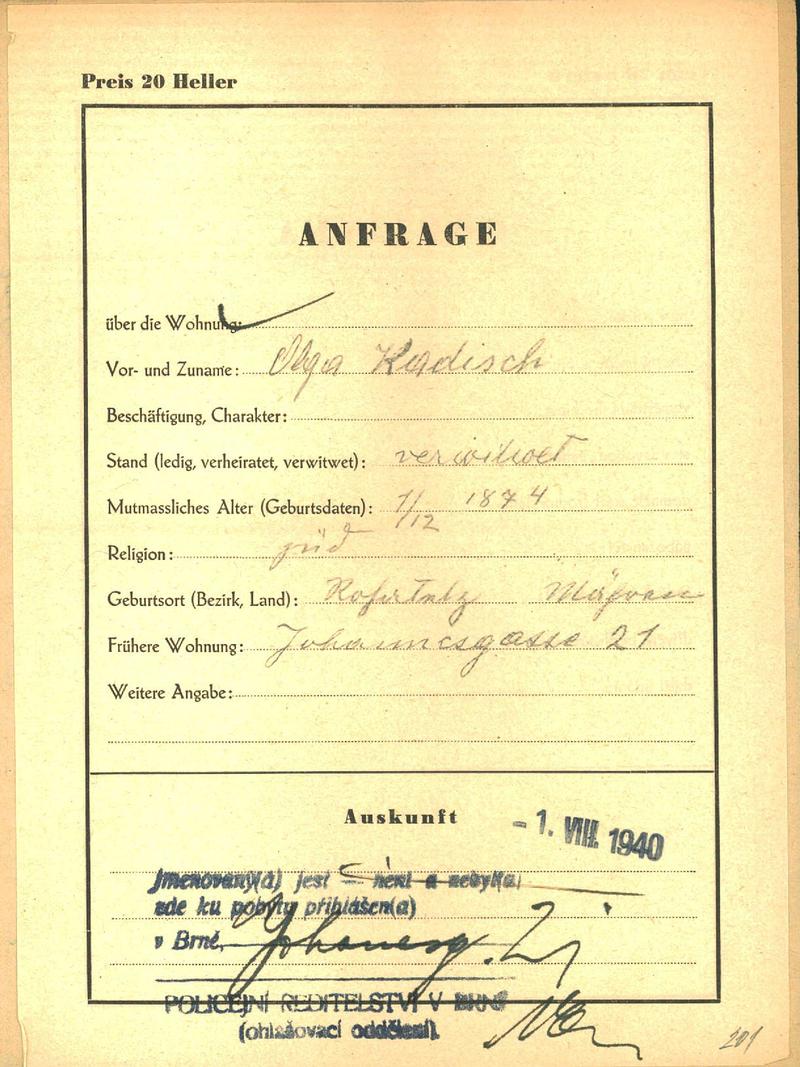 Preis 20 Heller
ANFRAGE
über die Wohnung:
Vor- und Zuname: Olga Kadisch
Beschäftigung, Charakter:
Stand (ledig, verheiratet, verwitwet): verwitwet
Mutmassliches Alter (Geburtsdaten): 1/12 1874
Religion: jüd
Geburtsort (Bezirk, Land): Mähren
Frühere Wohnung: Johannesgasse 21
Weitere Angabe:
Auskunft
- 1. VIII. 1940
Jmenovaný(á) jest — není a nebyl(a)
zde ku pobytu přihlášen(a)
v Brně, Johannesg. 21
POLICEJNÍ ŘEDITELSTVÍ V BRNĚ
(ohlašovací oddělení).
201